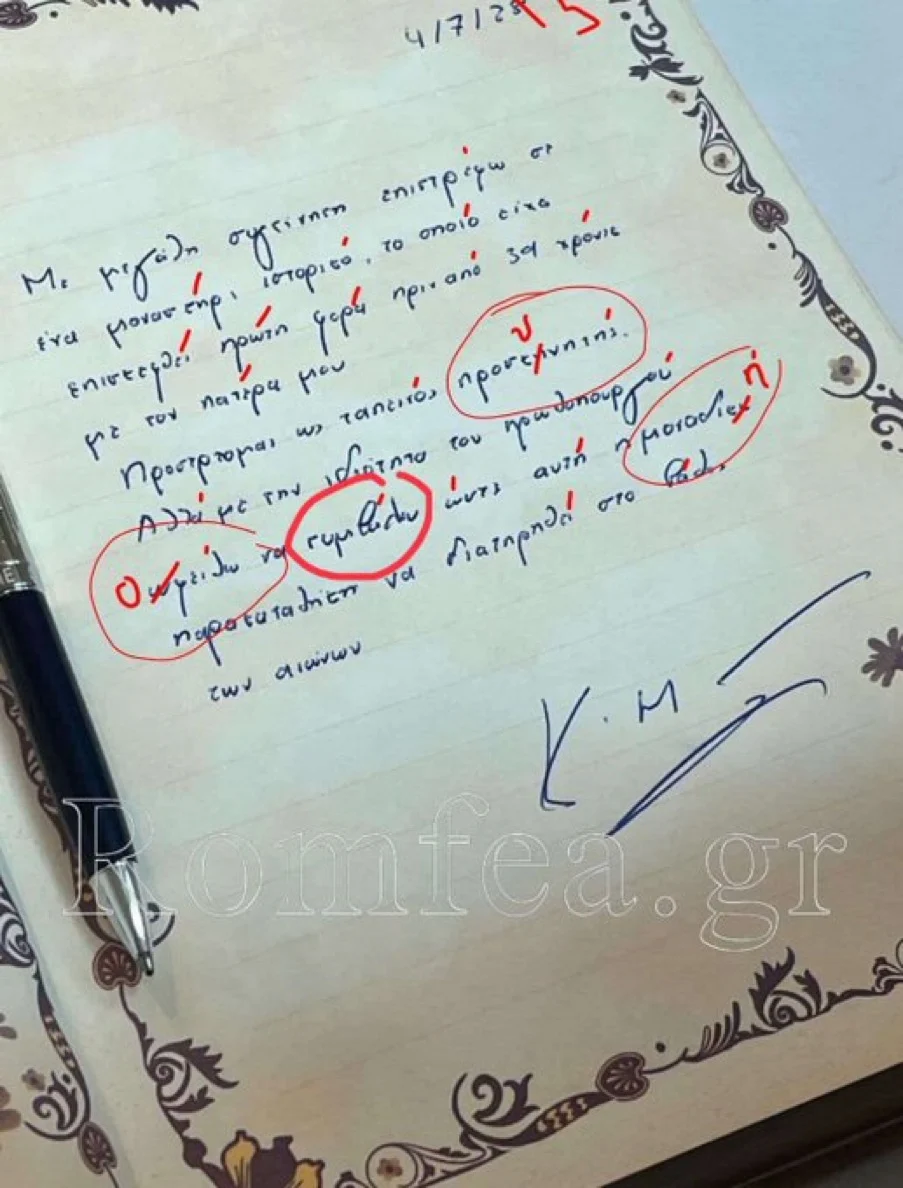 4/7/23
Με μεγάλη συγκίνηση επιστρέφω σε
ένα μοναστήρι ιστορικό, το οποίο είχα
επισκεφθεί πρώτη φορά πριν από 39 χρόνια
με τον πατέρα μου
Προσέρχομαι ως ταπεινός προσκηνητής.
Αλλά με την ιδιότητα του πρωθυπουργού
ωφείλω να συμβάλω ώστε αυτή η μοναδική
παρακαταθήκη να διατηρηθεί στο βάθος
των αιώνων
Κ. Μ
Romfea.gr